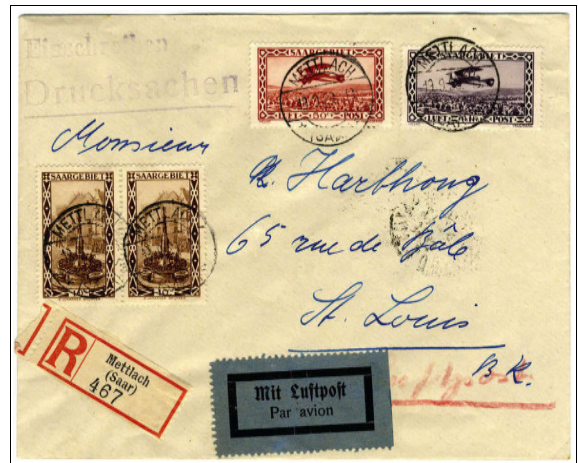 Einschreiben
Drucksachen
SAARGEBIET
METTLACH
LUFT POST
SAARGEBIET
METTLACH
LUFT POST
Monsieur
SAARGEBIET
SAARGEBIET
METTLACH
METTLACH
R. Harbhong
65 rue de Bâle
St. Louis
R
Mettlach
(Saar)
467
Mit Luftpost
Par avion